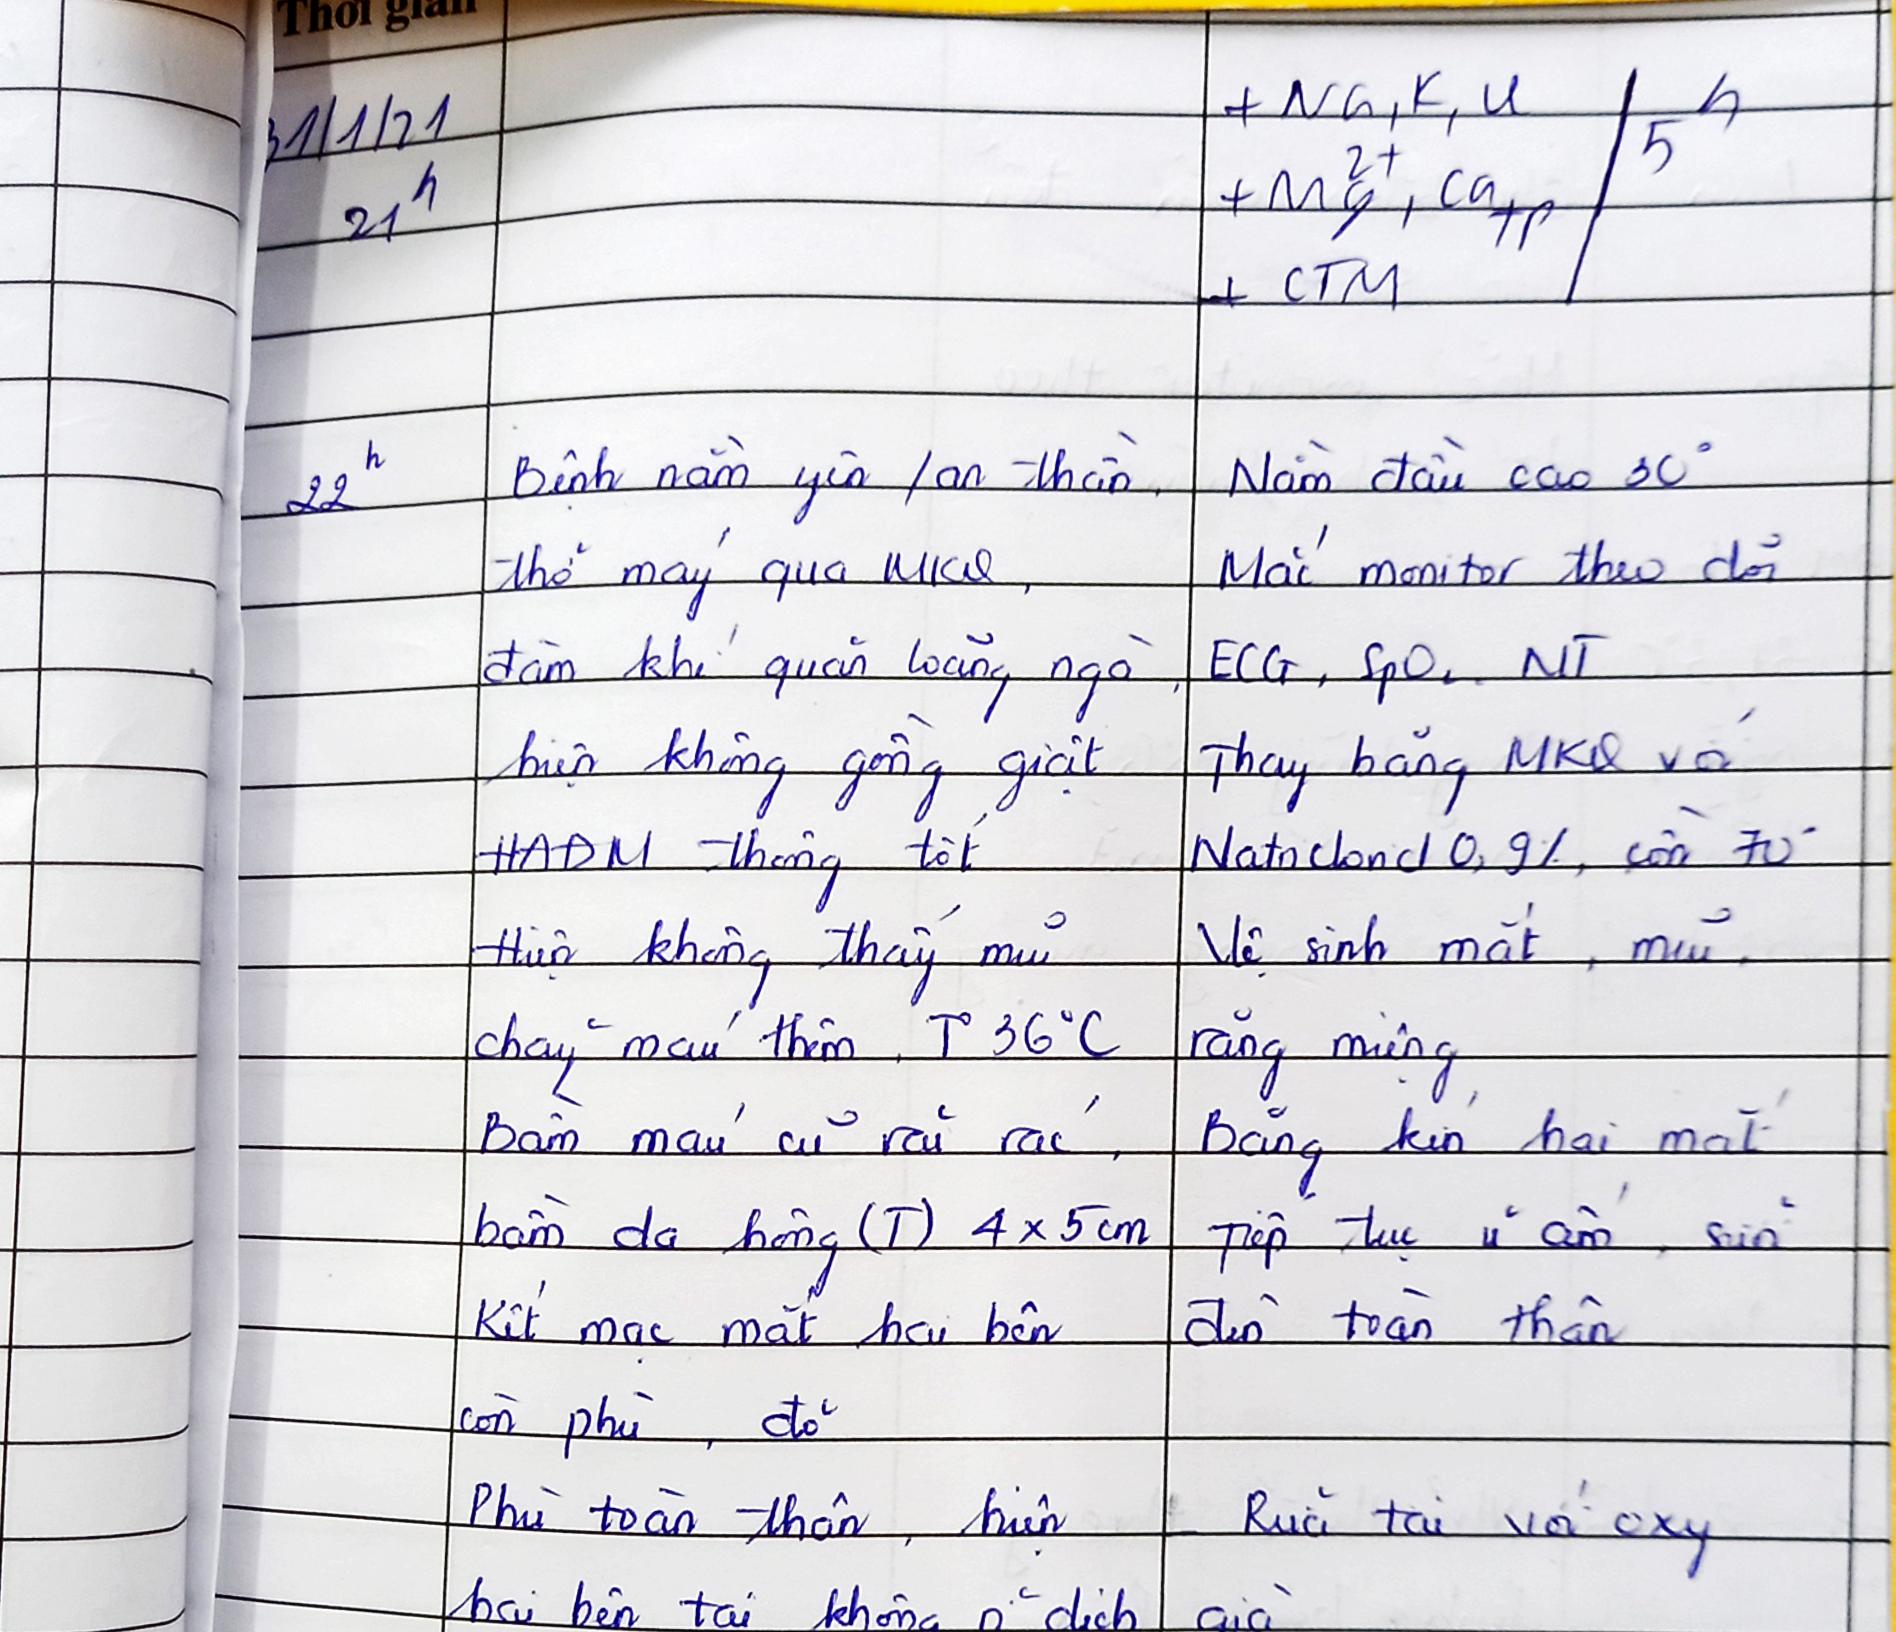 Thời gian
31/1/21
21h
+ Na, K, U
+ Mg2+, Ca TP
+ CTM
5h
22h
Bệnh nằm yên / an thần,
thở máy qua MKQ,
đàm khí quản loãng ngà,
hiện không gồng giật
HAĐM thông tốt
Hiện không thấy mủ
chảy máu thêm, T° 36°C
Bầm máu cũ rải rác,
bầm da hông (T) 4 x 5 cm
Kết mạc mắt hai bên
còn phù, đỏ
Phù toàn thân, hiện
hai bên tai không rỉ dịch
Nằm đầu cao 30°
Mắc monitor theo dõi
ECG, SpO2, NT
Thay băng MKQ với
Natriclorid 0,9%, cồn 70°
Vệ sinh mắt, mũi,
răng miệng
Băng kín hai mắt
Tiếp tục ủ ấm, sưởi
đèn toàn thân
- Rửa tai với oxy
già